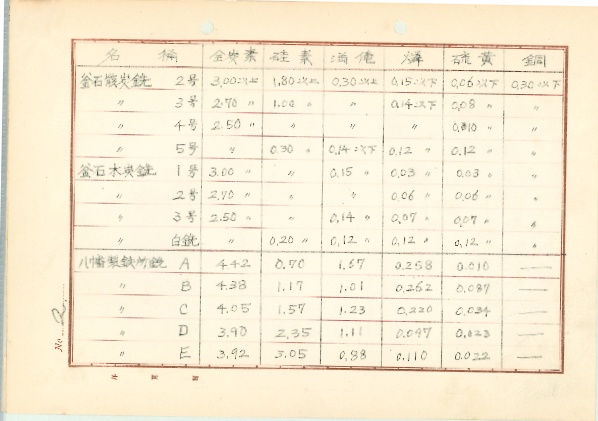 名 称 全炭素 硅素 満俺 燐 硫黄 銅
釜石骸炭銑 2号 3.00以上 1.80以上 0.30以上 0.15以下 0.06以下 0.30以下
〃 3号 2.70〃 1.00〃 〃 0.14以下 0.08〃 〃
〃 4号 2.50〃 〃 〃 〃 0.010〃 〃
〃 5号 〃 0.30〃 0.14以下 0.12〃 0.12〃 〃
釜石木炭銑 1号 3.00〃 〃 0.15〃 0.03〃 0.03〃 〃
〃 2号 2.70〃 〃 〃 0.06〃 0.06〃 〃
〃 3号 2.50〃 〃 0.14〃 0.07〃 0.07〃 〃
〃 白銑 〃 0.20〃 0.12〃 0.12〃 0.12〃 〃
八幡製鉄所銑 A 4.42 0.70 1.67 0.258 0.010 —
〃 B 4.38 1.17 1.01 0.262 0.087 —
〃 C 4.05 1.57 1.23 0.220 0.034 —
〃 D 3.90 2.35 1.11 0.097 0.023 —
〃 E 3.92 3.05 0.88 0.110 0.022 —
No. 2